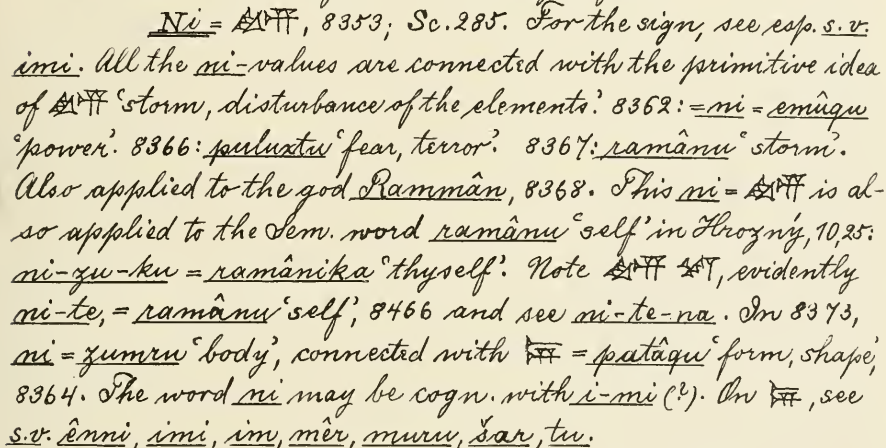 Ni = 𒅎, 8353; Sc. 285. For the sign, see esp. s. v.
imi. All the ni-values are connected with the primitive idea
of 𒅎 ‘storm, disturbance of the elements’. 8362: = ni = emûqu
‘power’. 8366: puluxtu ‘fear, terror’. 8367: ramânu ‘storm’.
Also applied to the god Rammân, 8368. This ni = 𒅎 is al-
so applied to the Sem. word ramânu ‘self’ in Hrozný, 10,25:
ni-zu-ku = ramânika ‘thyself’. Note 𒅎 𒋼, evidently
ni-te, = ramânu ‘self’, 8466 and see ni-te-na. In 8373,
ni = zumru ‘body’, connected with = patâqu ‘form, shape’,
8364. The word ni may be cogn. with i-mi (?). On , see
s.v. ênni, imi, im, mêr, muru, šar, tu.